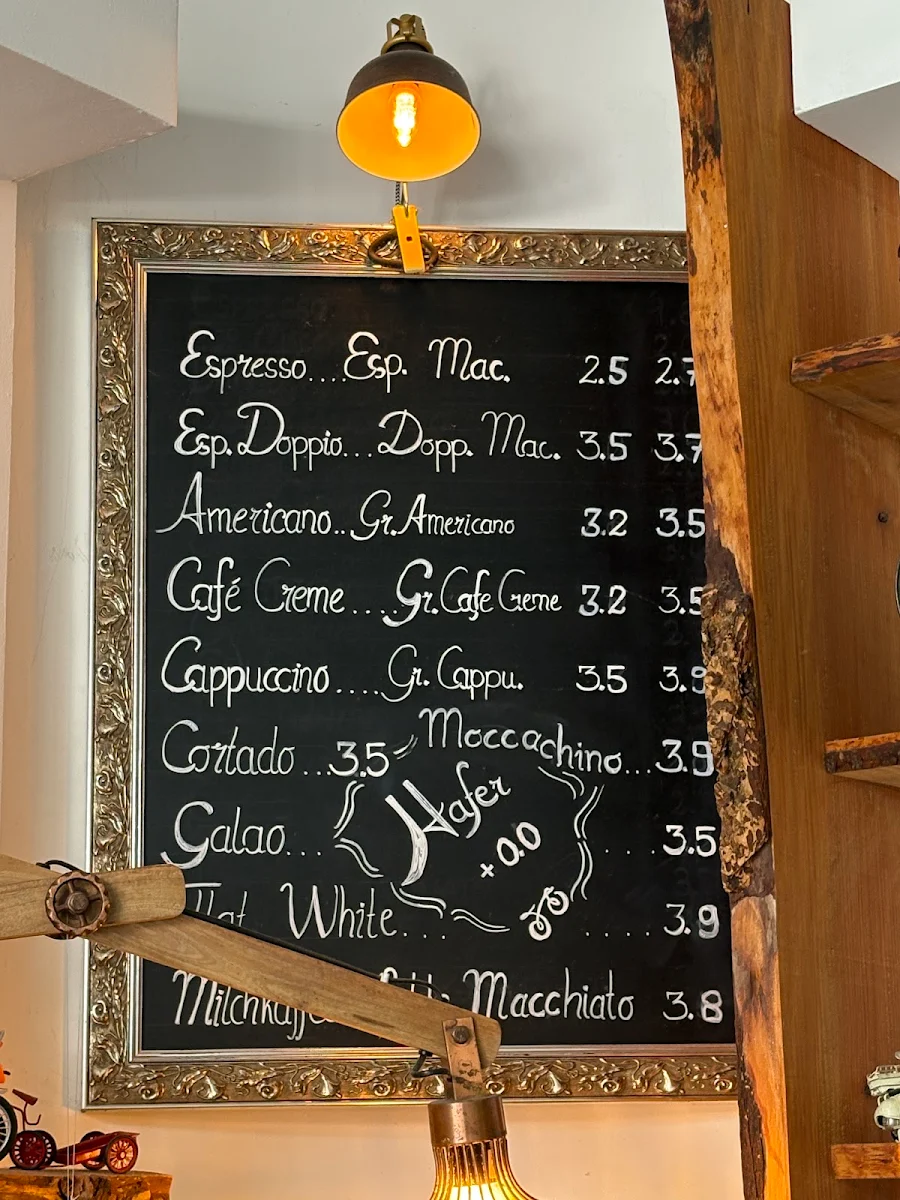 Espresso....Esp. Mac. 2.5 2.7
Esp. Doppio... Dopp. Mac. 3.5 3.7
Americano...Gr. Americano 3.2 3.5
Café Creme ....Gr. Cafe Creme 3.2 3.5
Cappuccino ....Gr. Cappu. 3.5 3.9
Cortado ...3.5 Moccachino...3.9
Hafer
+0.0
Galao... ....3.5
Flat White... ....3.9
Milchkaffee Macchiato 3.8